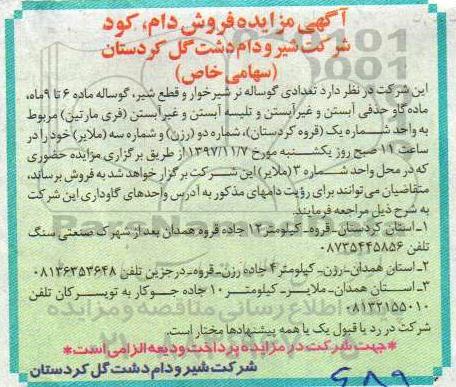 آگهی مزایده فروش دام، کود
شرکت شیر و دام دشت گل کردستان
(سهامی خاص)
این شرکت در نظر دارد تعدادی گوساله نر شیرخوار و قطع شیر، گوساله ماده ۶ تا ۹ ماه،
ماده گاو حذفی آبستن و غیرآبستن و تلیسه آبستن و غیرآبستن (فری مارتین) مربوط
به واحد شماره یک (قروه کردستان)، شماره دو (رزن) و شماره سه (ملایر) خود را در
ساعت ۱۱ صبح روز یکشنبه مورخ ۱۳۹۷/۱۱/۷ از طریق برگزاری مزایده حضوری
که در محل واحد شماره ۳ (ملایر) این شرکت برگزار خواهد شد به فروش برساند،
متقاضیان می‌توانند برای رؤیت دامهای مذکور به آدرس واحدهای گاوداری این شرکت
به شرح ذیل مراجعه فرمایند.
۱ـ استان کردستان-قروه- کیلومتر ۱۲ جاده قروه همدان بعد از شهرک صنعتی سنگ
تلفن ۰۸۷۳۵۴۴۵۸۵۶
۲ـ استان همدان-رزن- کیلومتر ۴ جاده رزن-قروه-درجزین تلفن ۰۸۱۳۶۳۵۳۶۴۸
۳ـ استان همدان- ملایر- کیلومتر ۱۰ جاده جوکار به تویسرکان تلفن
۰۸۱۳۲۱۵۵۰۱۰
شرکت در رد یا قبول یک یا همه پیشنهادها مختار است.
*جهت شرکت در مزایده پرداخت ودیعه الزامی است*
شرکت شیر و دام دشت گل کردستان
۶۸۹